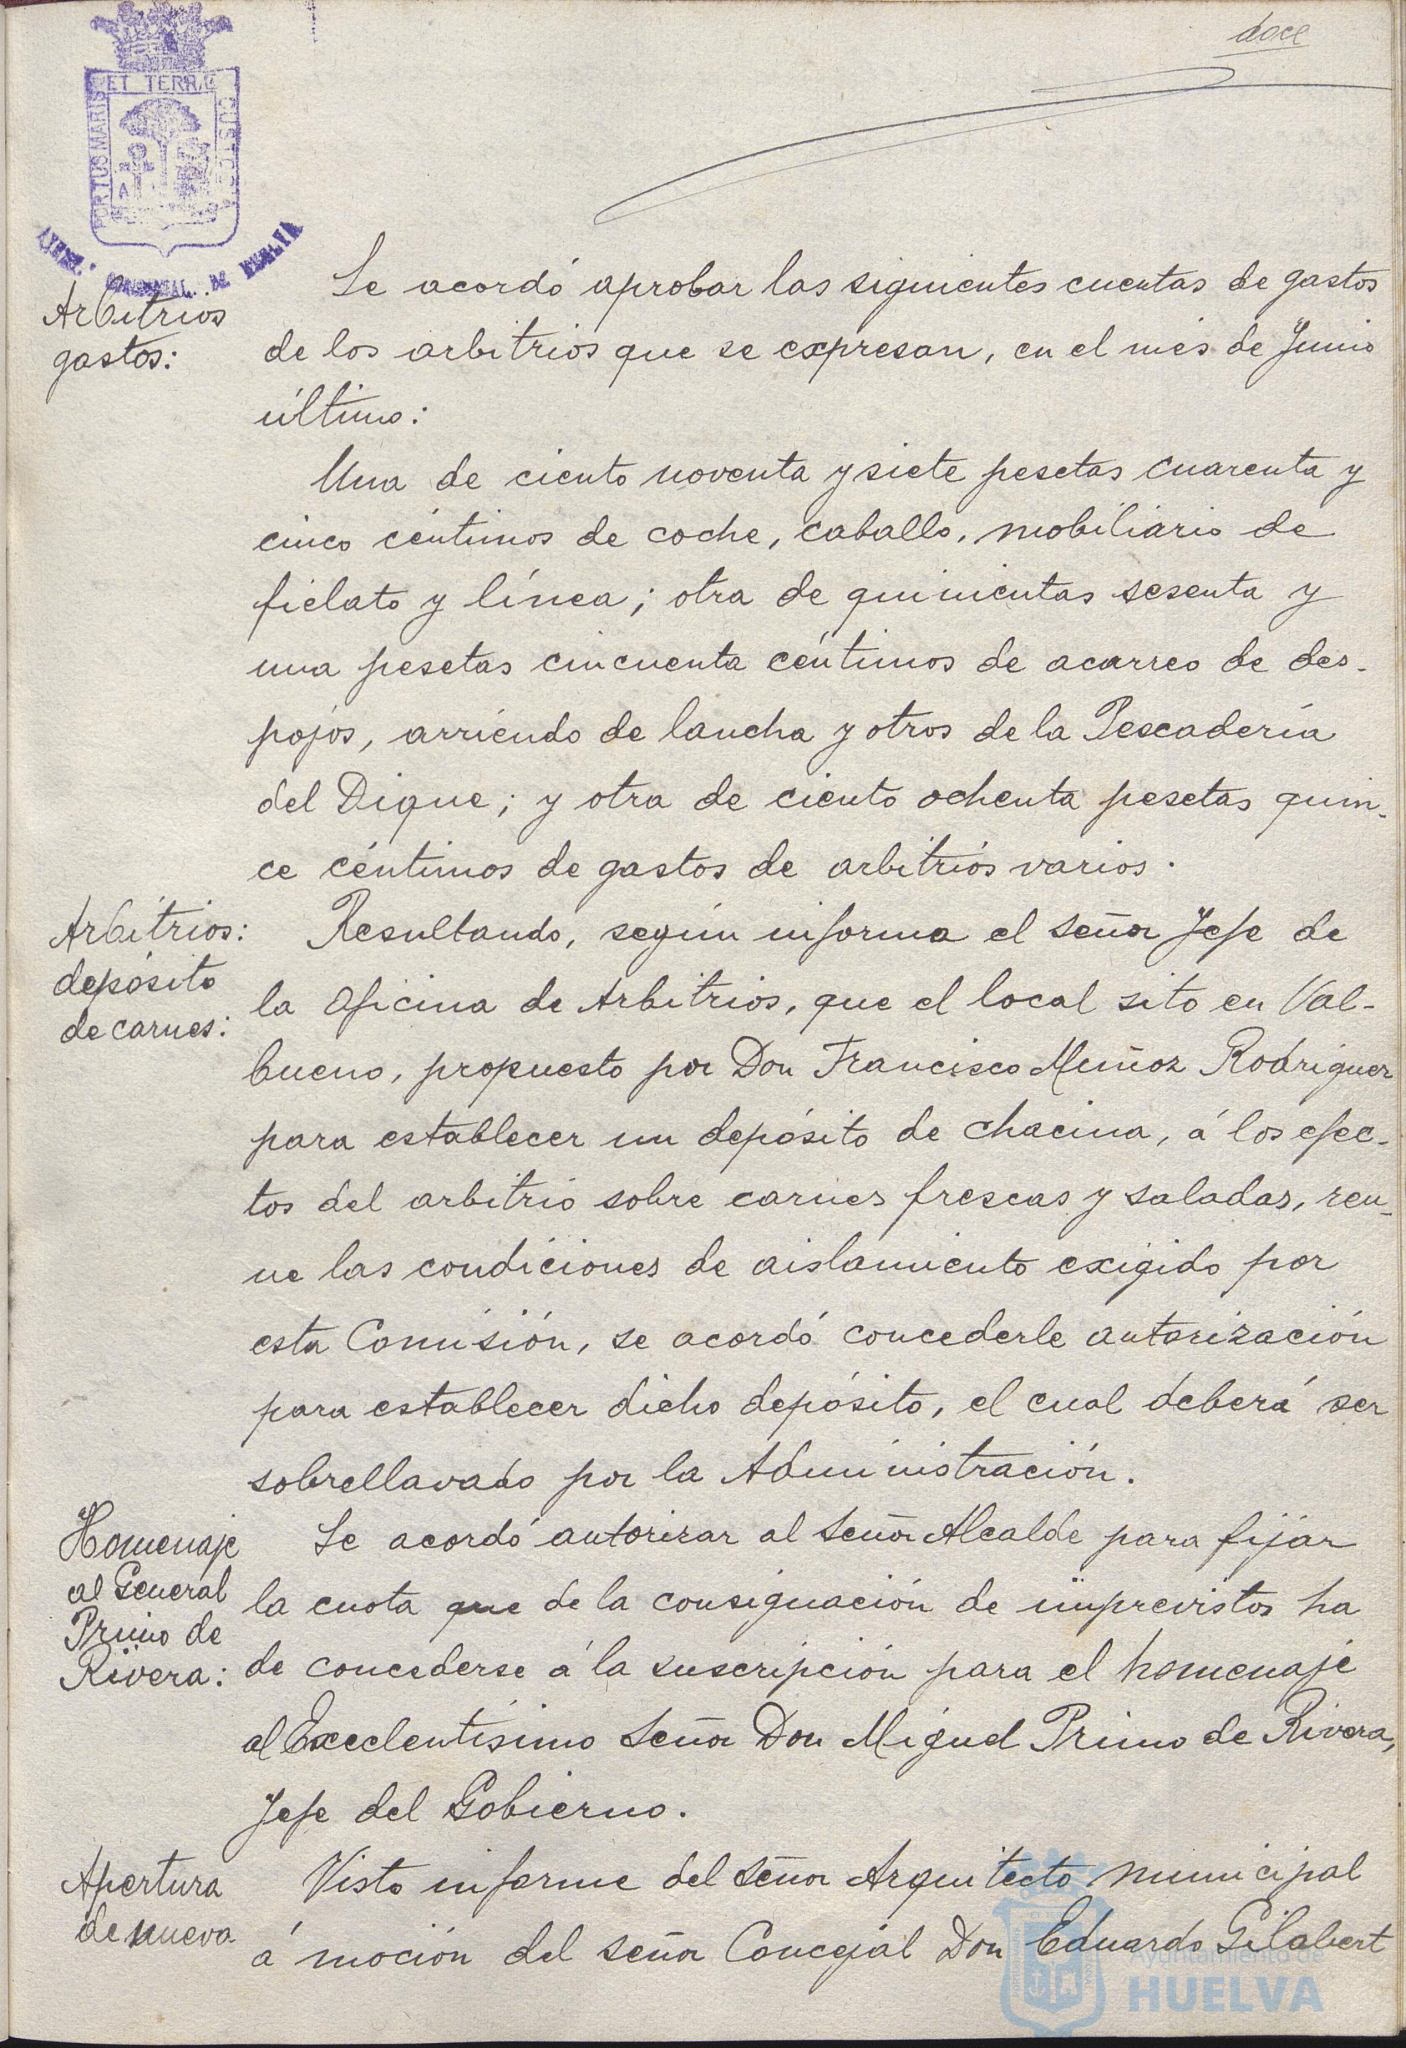 doce
PORTUS MARIS ET TERRAE CUSTODIA
AYUNT. CONSTITUCIONAL DE HUELVA
Arbitrios
gastos:
Se acordó aprobar las siguientes cuentas de gastos
de los arbitrios que se expresan, en el mes de Junio
último:
Una de ciento noventa y siete pesetas cuarenta y
cinco céntimos de coche, caballo, mobiliario de
fielato y línea; otra de quinientas sesenta y
una pesetas cincuenta céntimos de acarreo de des-
pojos, arriendo de lancha y otros de la Pescadería
del Dique; y otra de ciento ochenta pesetas quin-
ce céntimos de gastos de arbitrios varios.
Arbitrios:
depósito
de carnes:
Resultando, según informa el señor Jefe de
la Oficina de Arbitrios, que el local sito en Val-
bueno, propuesto por Don Francisco Muñoz Rodriguez
para establecer un depósito de chacina, á los efec-
tos del arbitrio sobre carnes frescas y saladas, reu-
ne las condiciones de aislamiento exigido por
esta Comisión, se acordó concederle autorización
para establecer dicho depósito, el cual deberá ser
sobrellavado por la Administración.
Homenaje
al General
Primo de
Rivera:
Se acordó autorizar al Señor Alcalde para fijar
la cuota que de la consignación de imprevistos ha
de concederse á la suscripción para el homenaje
al Excelentísimo Señor Don Miguel Primo de Rivera,
Jefe del Gobierno.
Apertura
de nueva
Visto informe del señor Arquitecto municipal
á moción del señor Concejal Don Eduardo Gilabert
Ayuntamiento de
HUELVA